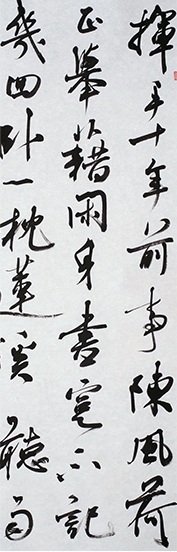 揮手十年前事陳風荷
正舉藉閑身書不記
幾回卧一枕蓮溪聽雨